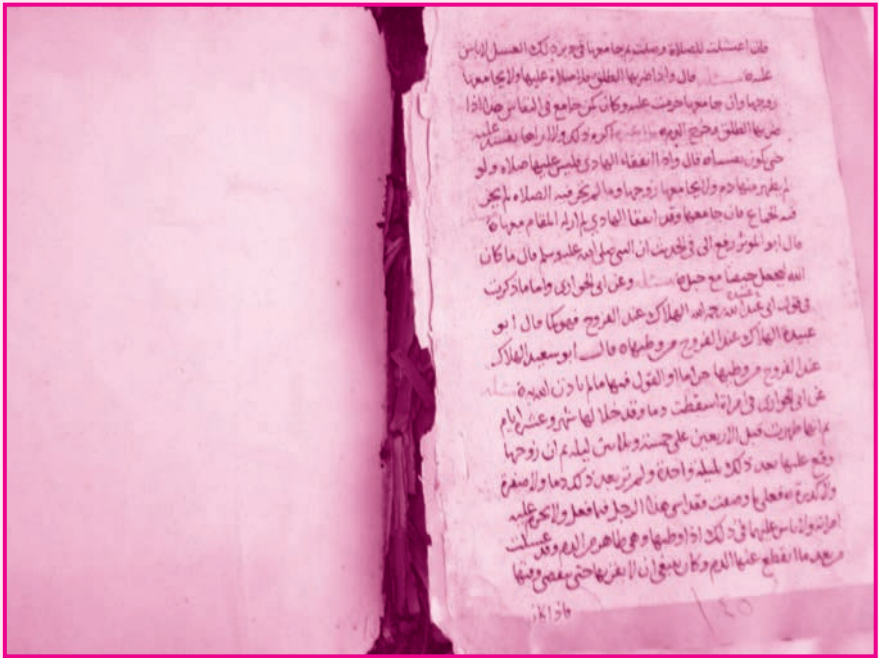 فان اغتسلت للصلاة وصلت ثم جامعها في دبر ذلك الغسل لاباس
عليه مسئلة قال واذا ضربها الطلق فلا صلاة عليها ولا يجامعها
زوجها وان جامعها حرمت عليه وكان كمن جامع في النفاس هذا اذا
ضربها الطلق وخرج الدم اكره ذلك ولا اراها تفسد عليه
حتى يكون نفساه قال واذا انفقاء الهادي فليس عليها صلاة ولو
لم يظهر منها دم ولا يجامعها زوجها وما لم يجز فيه الصلاة لم يجز
فيه الجماع فان جامعها وقد انفقا الهادي لم ار له المقام معها
قال ابو المؤثر رفع الي في الحديث ان النبي صلى الله عليه وسلم قال ما كان
الله ليجعل حيضا مع حبل مسئلة وعن ابي الحواري واما ما ذكرت
في قول ابي عبد الله رحمه الله الهلاك عند الفروج فهو كما قال ابو
عبيدة الهلاك عند الفروج من وطيها قال ابو سعيد الهلاك
عند الفروج من وطيها حراما والقول فيها ما لم ياذن الله به مسئلة
عن ابي الحواري في امراة اسقطت دما وقد خلا لها شهر وعشر ايام
ثم انها طهرت قبل الاربعين على خمسة وثلاثين ليلة ثم ان زوجها
وقع عليها بعد ذلك بليلة واحدة ولم تر بعد ذلك دما ولا صفرة
ولا كدرة فعلى ما وصفت فقد اسى هذا الرجل فيما فعل ولا تحرم عليه
امراته ولا باس عليهما في ذلك اذا وطيها وهي طاهر من الدم وقد غسلت
من بعد ما انقطع عنها الدم وكان ينبغي ان لا يقربها حتى ينقضي وقتها
فاذا كان
١٤٥